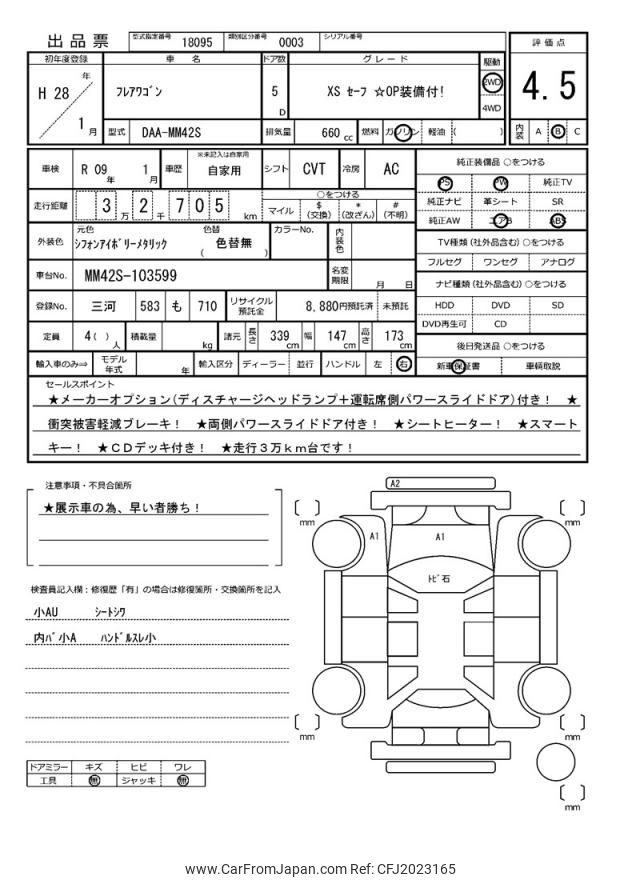 出品票 型式指定番号 18095 類別区分番号 0003 シリアル番号
初年度登録 車名 ドア数 グレード 駆動 評価点
H 28 年 1 月 フレアワゴン 5 D XS セーフ ☆OP装備付! 2WD 4WD 4.5
型式 DAA-MM42S 排気量 660 cc 燃料 ガソリン 軽油 ( ) 内装 A B C
車検 R 09 年 1 月 車歴 ※未記入は自家用 自家用 シフト CVT 冷房 AC
走行距離 3 万 2 千 7 0 5 km ○をつける
マイル $(交換) *(改ざん) #(不明)
外装色 元色 シフォンアイボリーメタリック 色替 色替無 ( ) カラーNo. 内装色
車台No. MM42S-103599 名変期限 月 日
登録No. 三河 583 も 710 リサイクル預託金 8,880円預託済 未預託
定員 4( ) 人 積載量 kg 諸元 長さ 339 cm 幅 147 cm 高さ 173 cm
輸入車のみ⇒ モデル年式 年 輸入区分 ディーラー 並行 ハンドル 左 右
純正装備品 ○をつける
PS PW 純正TV
純正ナビ 革シート SR
純正AW エアB ABS
TV種類 (社外品含む) ○をつける
フルセグ ワンセグ アナログ
ナビ種類 (社外品含む) ○をつける
HDD DVD SD
DVD再生可 CD
後日発送品 ○をつける
新車保証書 車輌取説
セールスポイント
★メーカーオプション(ディスチャージヘッドランプ+運転席側パワースライドドア)付き! ★
衝突被害軽減ブレーキ! ★両側パワースライドドア付き! ★シートヒーター! ★スマート
キー! ★CDデッキ付き! ★走行3万km台です!
注意事項・不具合箇所
★展示車の為、早い者勝ち!
検査員記入欄:修復歴「有」の場合は修復箇所・交換箇所を記入
小AU シートシワ
内バ小A ハンドルスレ小
ドアミラー キズ ヒビ ワレ
工具 無 ジャッキ 無
A2
A1 A1
トビ石
[ ] mm [ ] mm
[ ] mm [ ] mm
[ ] mm
www.CarFromJapan.com Ref: CFJ2023165